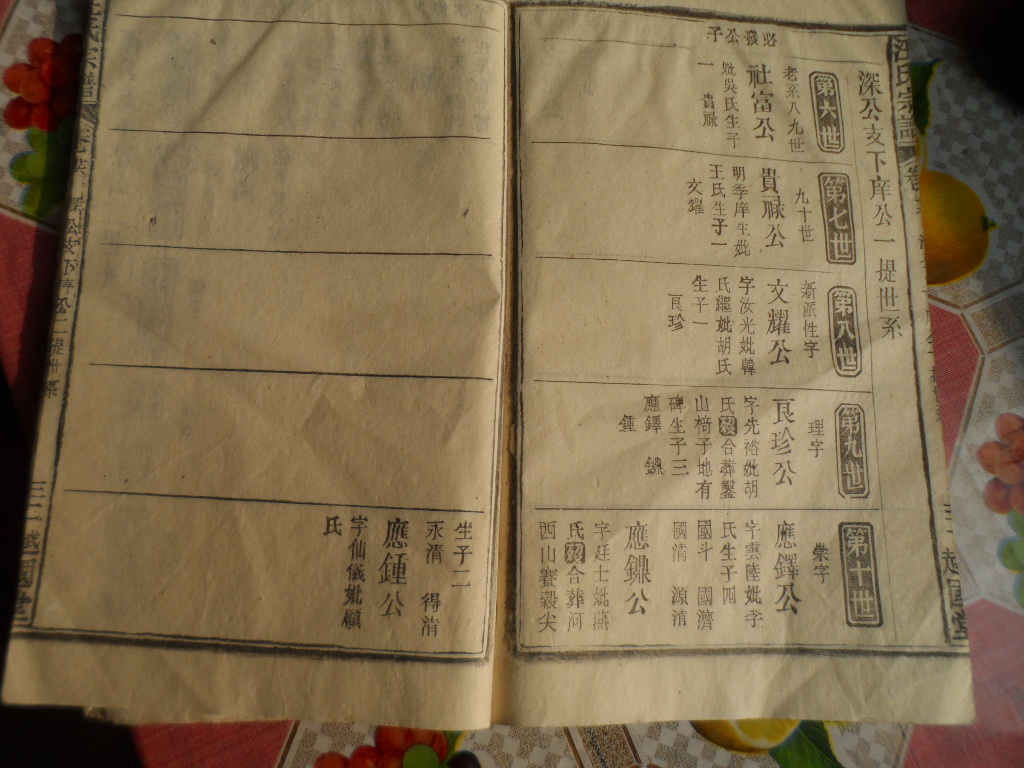 汪氏宗譜
深公支下庠公一提世系
第六世
老系八九世
必發公子
社富公
妣吳氏生子
一
貴祿
第七世
九十世
貴祿公
明季庠生妣
王氏生子一
文耀
第八世
新派性字
文耀公
字汝光妣韓
氏繼妣胡氏
生子一
良珍
第九世
理字
良珍公
字先裕妣胡
氏
合葬鑿
山椅子地有
碑生子三
應鐸
鍾
第十世
崇字
應鐸公
字雲陸妣李
氏生子四
國斗 國濟
國清 源清
字廷士妣燕
氏
合葬河
西山賽穀尖
越國堂
生子二
永清 得清
應鍾公
字仙儀妣鎮
氏
越國堂